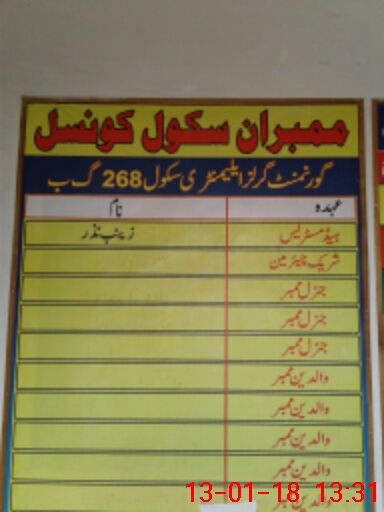 ممبران سکول کونسل
گورنمنٹ گرلز ایلیمنٹری سکول 268 گ ب
عہدہ نام
ہیڈ مسٹریس زینب نذر
شریک چیئرمین
جنرل ممبر
جنرل ممبر
جنرل ممبر
والدین ممبر
والدین ممبر
والدین ممبر
والدین ممبر
والدین ممبر
13-01-18 13:31